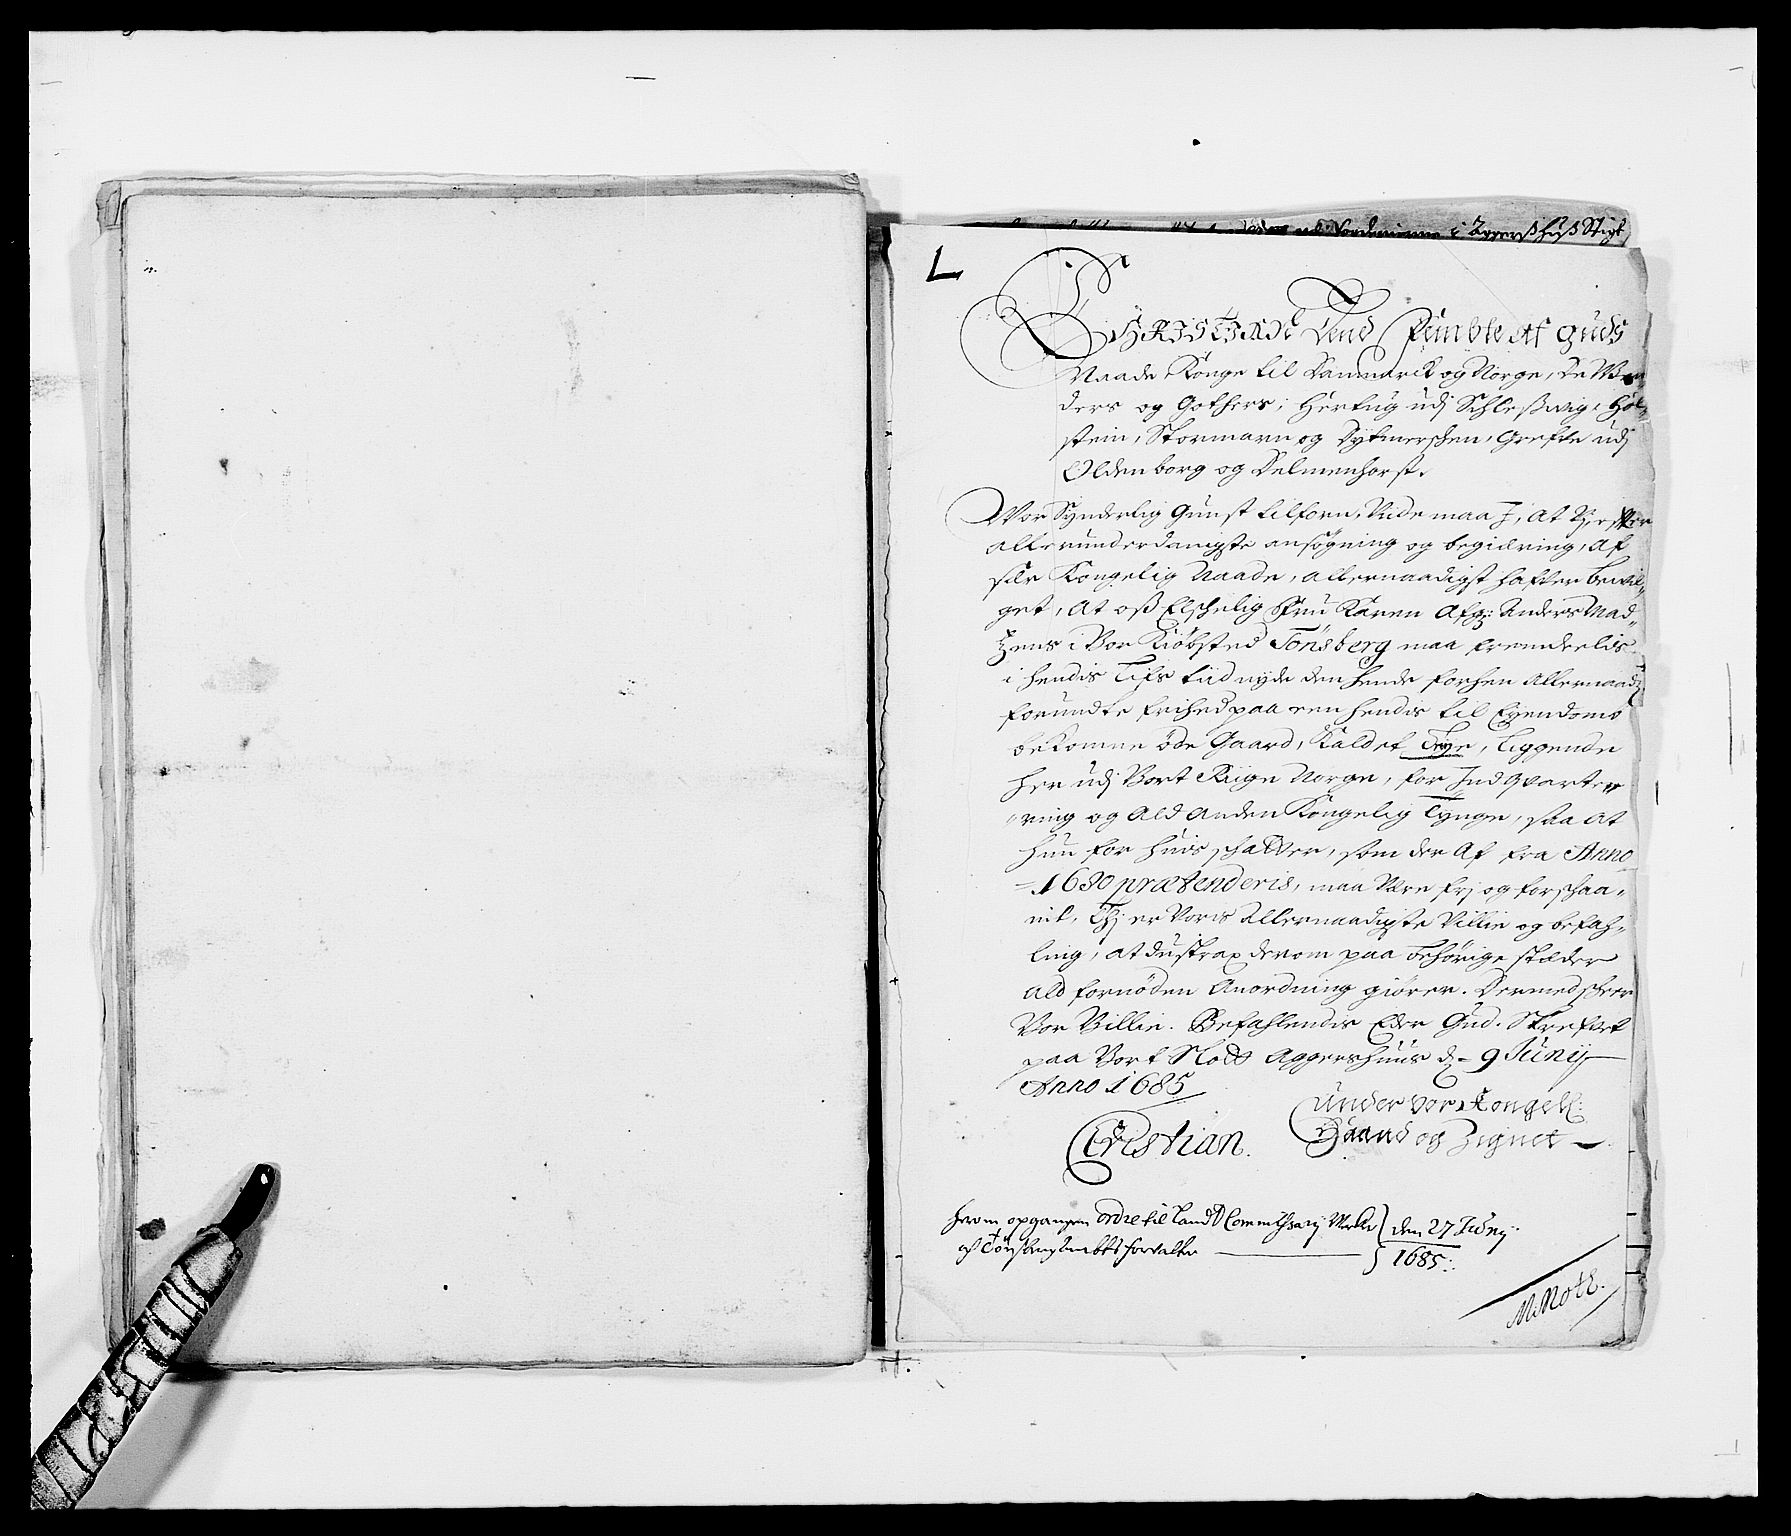 L
CHRISTIAN Dend Femte Af Guds
Naade Konge til Danmarck og Norge, De Wen
ders og Gothers, Hertug udj Schleßwig, Hol-
stein, Stormarn og Dytmerschen, Grefve udj
Oldenborg og Delmenhorst.
Wor Synderlig Gunst tilforn, Vide maa I, At Vj efter
allerunderdanigste ansøgning og begiæring, af
sær Kongelig Naade, allernaadigst hafver bevil-
get, At oß Elschelig Fru Karen Afg: Anders Mad-
zens i Vor Kiöbsted Tönsberg maa fremdeelis
i hendis Lifs tiid nyde den hende forhen Allernaad:
forundte frihed paa een hendis til Eyendoms
bekomne öde Gaard, Kaldet Feye, liggende
her udj Vort Riige Norge, for Indqvarte-
ring og Ald Anden Kongelig Tynge, saa at
hun for huis schatter, som der Af fra Anno
1680 prætenderis, maa Være frj og forschaa-
nit, Thj er Voris Allernaadigste Villie og befah-
ling, at du strax derom paa behörige stæder
Ald fornöden Anordning giörer. Dermed scheer
Vor Villie. Befahlendis Eder Gud. Skrefvet
paa Vort Slott Aggershuus d. 9 Junij
Anno 1685
Under Vor Kongel:
Haand og Zignet
Christian.
herom opgangen ordre til Land Commissarij
den 27 Junij
1685
M Moth.